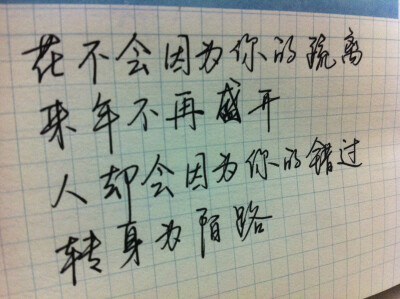 花不会因为你的疏离
来年不再盛开
人却会因为你的错过
转身为陌路